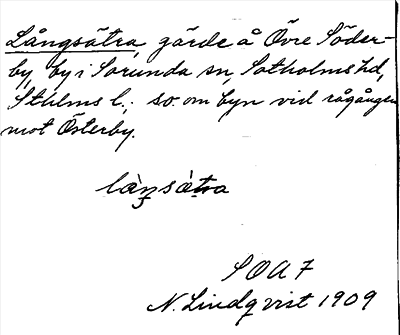 Långsätra, gärde å Övre Söder-
by, by i Sorunda sn, Sotholms hd,
Sthlms l.; so. om byn vid rågången
mot Österby.
làŋsà̀tra
SOA 7
N. Lindqvist 1909